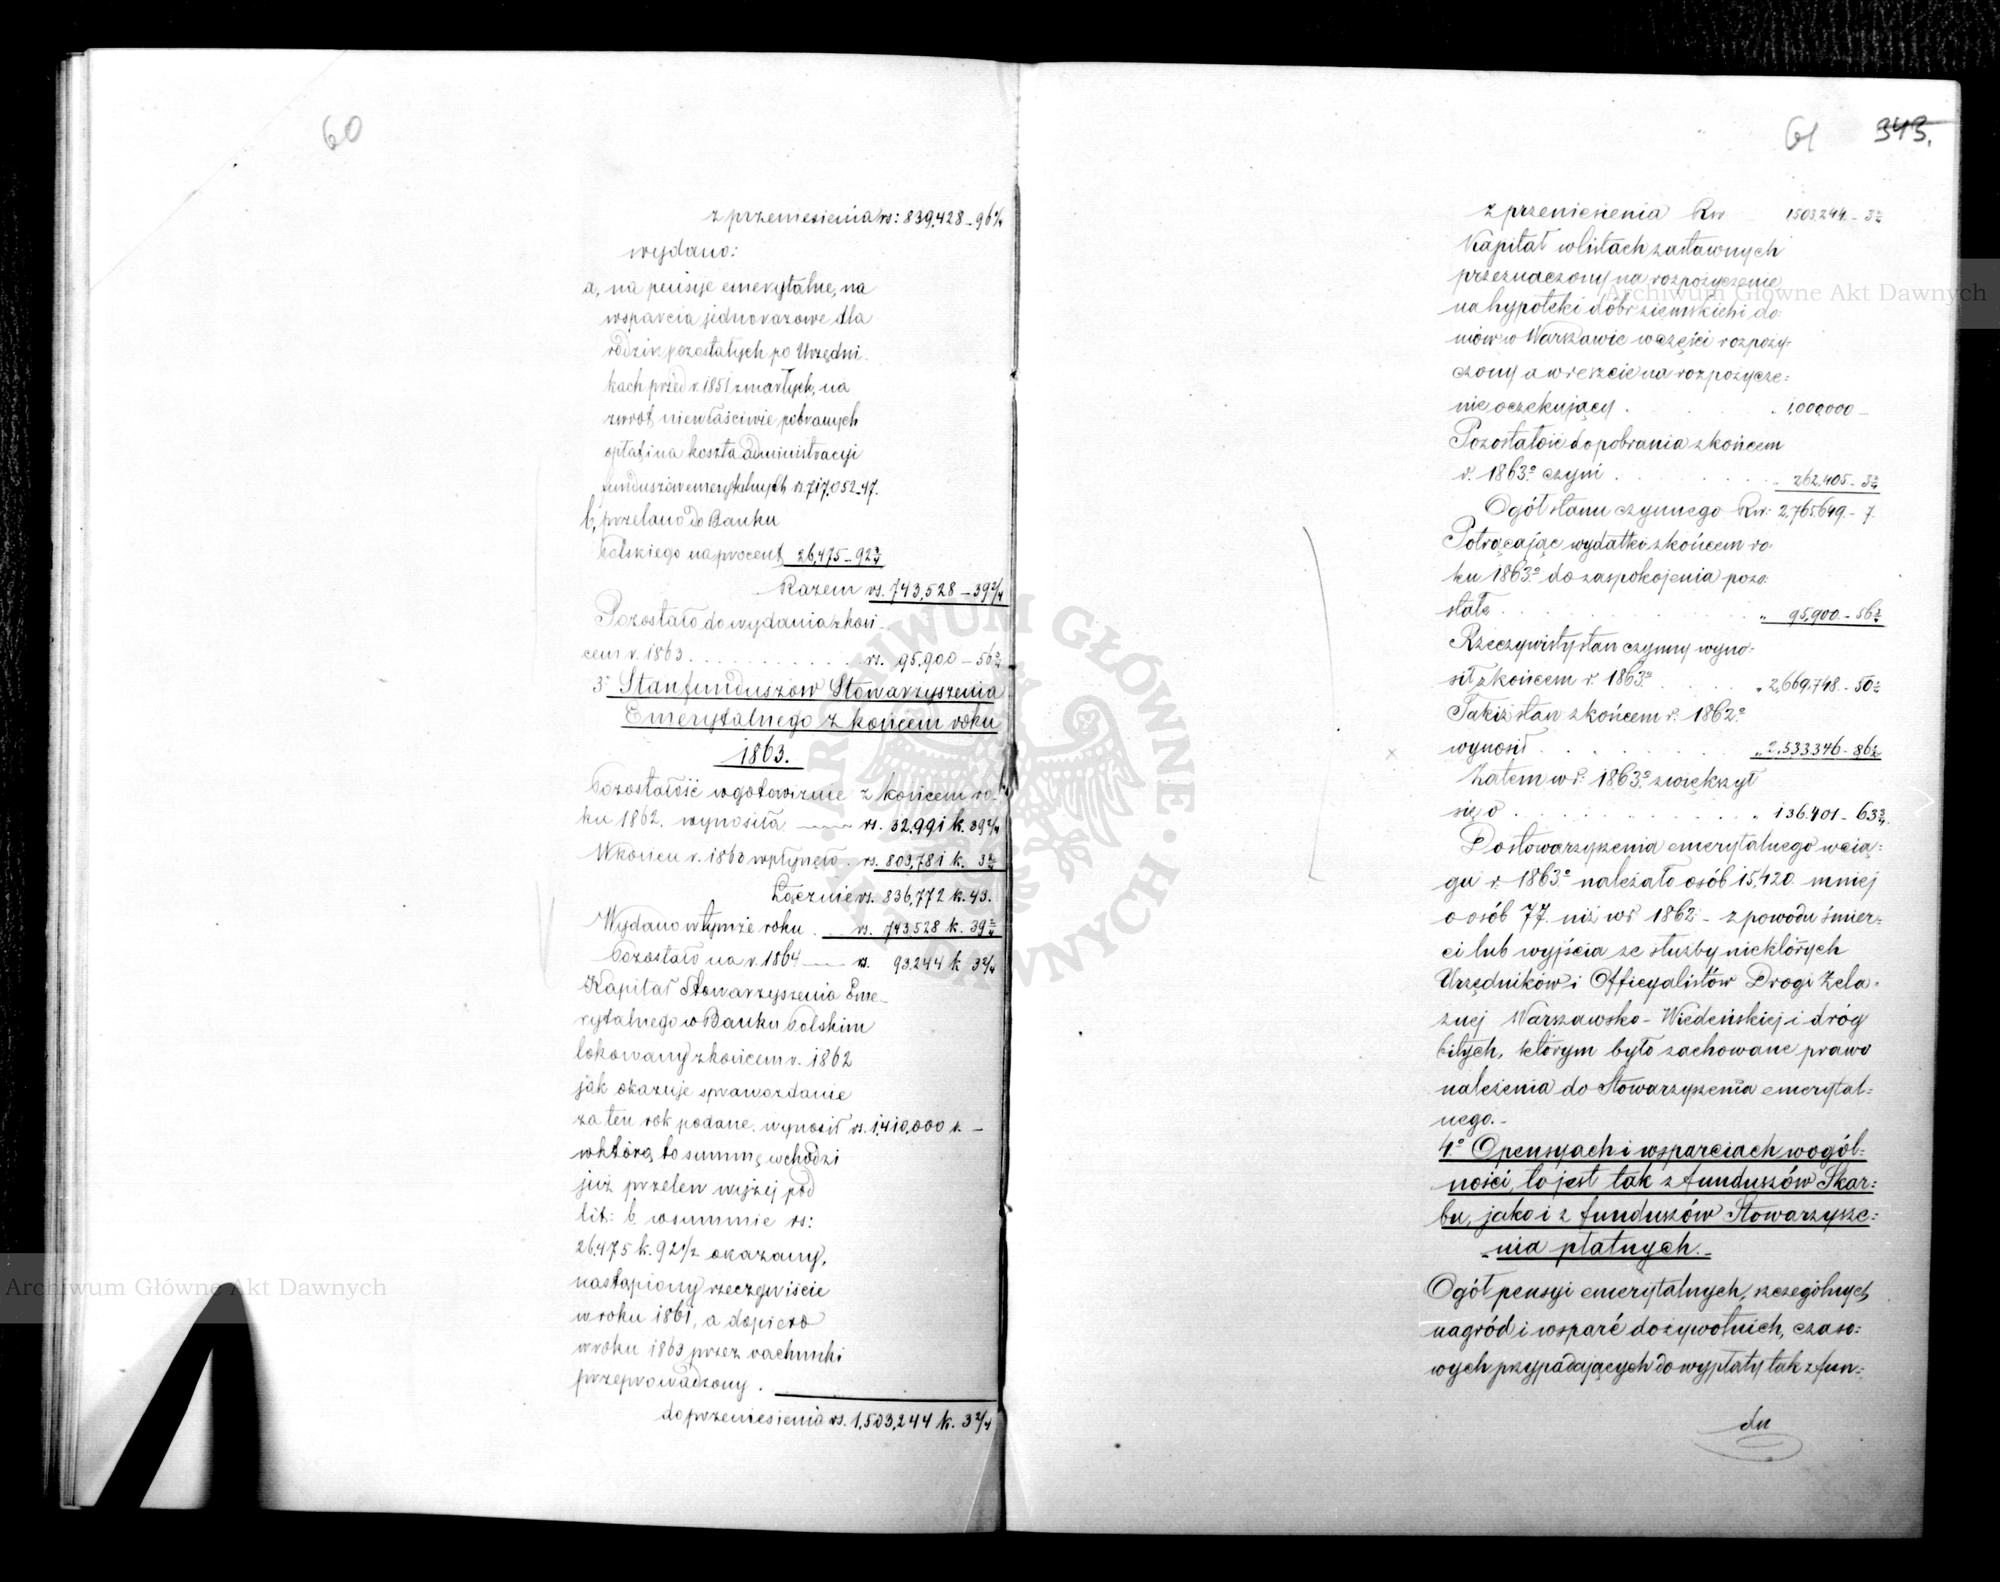 60
z przeniesienia rs: 839,428 – 96 2/4
wydano:
a, na pensije emerytalne, na
wsparcia jednorazowe dla
rodzin pozostałych po Urzędni-
kach przed r. 1851 zmarłych, na
zwrot niewłaściwie pobranych
opłat i na koszta administracyi
funduszów emerytalnych rs 717,052–47.
b, przelano do Banku
Polskiego na procent 26,475–92 2/4
Razem rs. 743,528 – 39 2/4
Pozostało do wydania z koń-
cem r. 1863 . . . . . . . . . . . rs. 95,900 – 56 2/4
3° Stan funduszów Stowarzyszenia
Emerytalnego z końcem roku
1863.
Pozostałość w gotowiznie z końcem ro-
ku 1862. wynosiła rs. 32,991 k. 39 2/4
W końcu r. 1863 wpłynęło . rs. 803,781 k. 3 2/4
Łącznie rs. 836,772 k. 43.
Wydano w tymże roku . . rs. 743,528 k. 39 2/4
Pozostało na r. 1864 rs. 93,244 k 3 2/4
Kapitał Stowarzyszenia Eme-
rytalnego w Banku Polskim
lokowany z końcem r. 1862
jak okazuje sprawozdanie
za ten rok podane. wynosił rs. 1,410,000 k. –
w którą to summę wchodzi
już przelew wyżej pod
lit: b. w summie rs:
26,475 k. 92 1/2 okazany,
nastąpiony rzeczywiście
w roku 1861, a dopiero
w roku 1863 przez rachunki
przeprowadzony .
do przeniesienia rs. 1,503,244 k. 3 2/4
61 343.
z przeniesienia Rsr 1503244. – 3 2/4
Kapitał w listach zastawnych
przeznaczony na rozpożyczenie
na hypoteki dóbr ziemskich i do-
mów w Warszawie w części rozpoży-
czony a wreszcie na rozpożycze=
nie oczekujący . . . . „ 1,000,000 –
Pozostałość do pobrania z końcem
r. 1863° czyni . . . . . . . „ 262,405 – 3 2/4
Ogół stanu czynnego Rsr: 2,765,649. – 7.
Potrącając wydatki z końcem ro-
ku 1863° do zaspokojenia pozo-
stałe . . . . . . . . . . „ 95,900. – 56 2/4
Rzeczywisty stan czynny wyno-
sił z końcem r. 1863° . . . . . „ 2,669,748. – 50 2/4
Takiż stan z końcem r. 1862°
wynosił . . . . . . . . „ 2,533,346 – 86 2/4
Zatem w r: 1863° zwiększył
się o . . . . . . . . . . . . „ 136,401 – 63 2/4
Do stowarzyszenia emerytalnego w cią=
gu r. 1863° należało osób 15,420 mniej
o osób 77. niż w r 1862 – z powodu śmier=
ci lub wyjścia ze służby niektórych
Urzędników i Officyalistów Drogi Żela-
znej Warszawsko-Wiedeńskiej i dróg
bitych, którym było zachowane prawo
należenia do Stowarzyszenia emerytal=
nego. –
4° O pensyach i wsparciach w ogól=
ności, to jest tak z funduszów Skar=
bu, jako i z funduszów Stowarzysze=
nia płatnych. –
Ogół pensyi emerytalnych, szczególnych
nagród i wsparć dożywotnich, czaso=
wych przypadających do wypłaty tak z fun=
du
Archiwum Główne Akt Dawnych
Archiwum Główne Akt Dawnych
ARCHIWUM GŁÓWNE AKT DAWNYCH